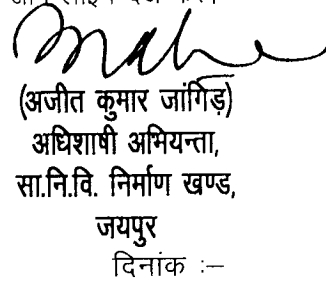 (अजीत कुमार जांगिड़)
अधिशाषी अभियन्ता,
सा.नि.वि. निर्माण खण्ड,
जयपुर
दिनांक :–